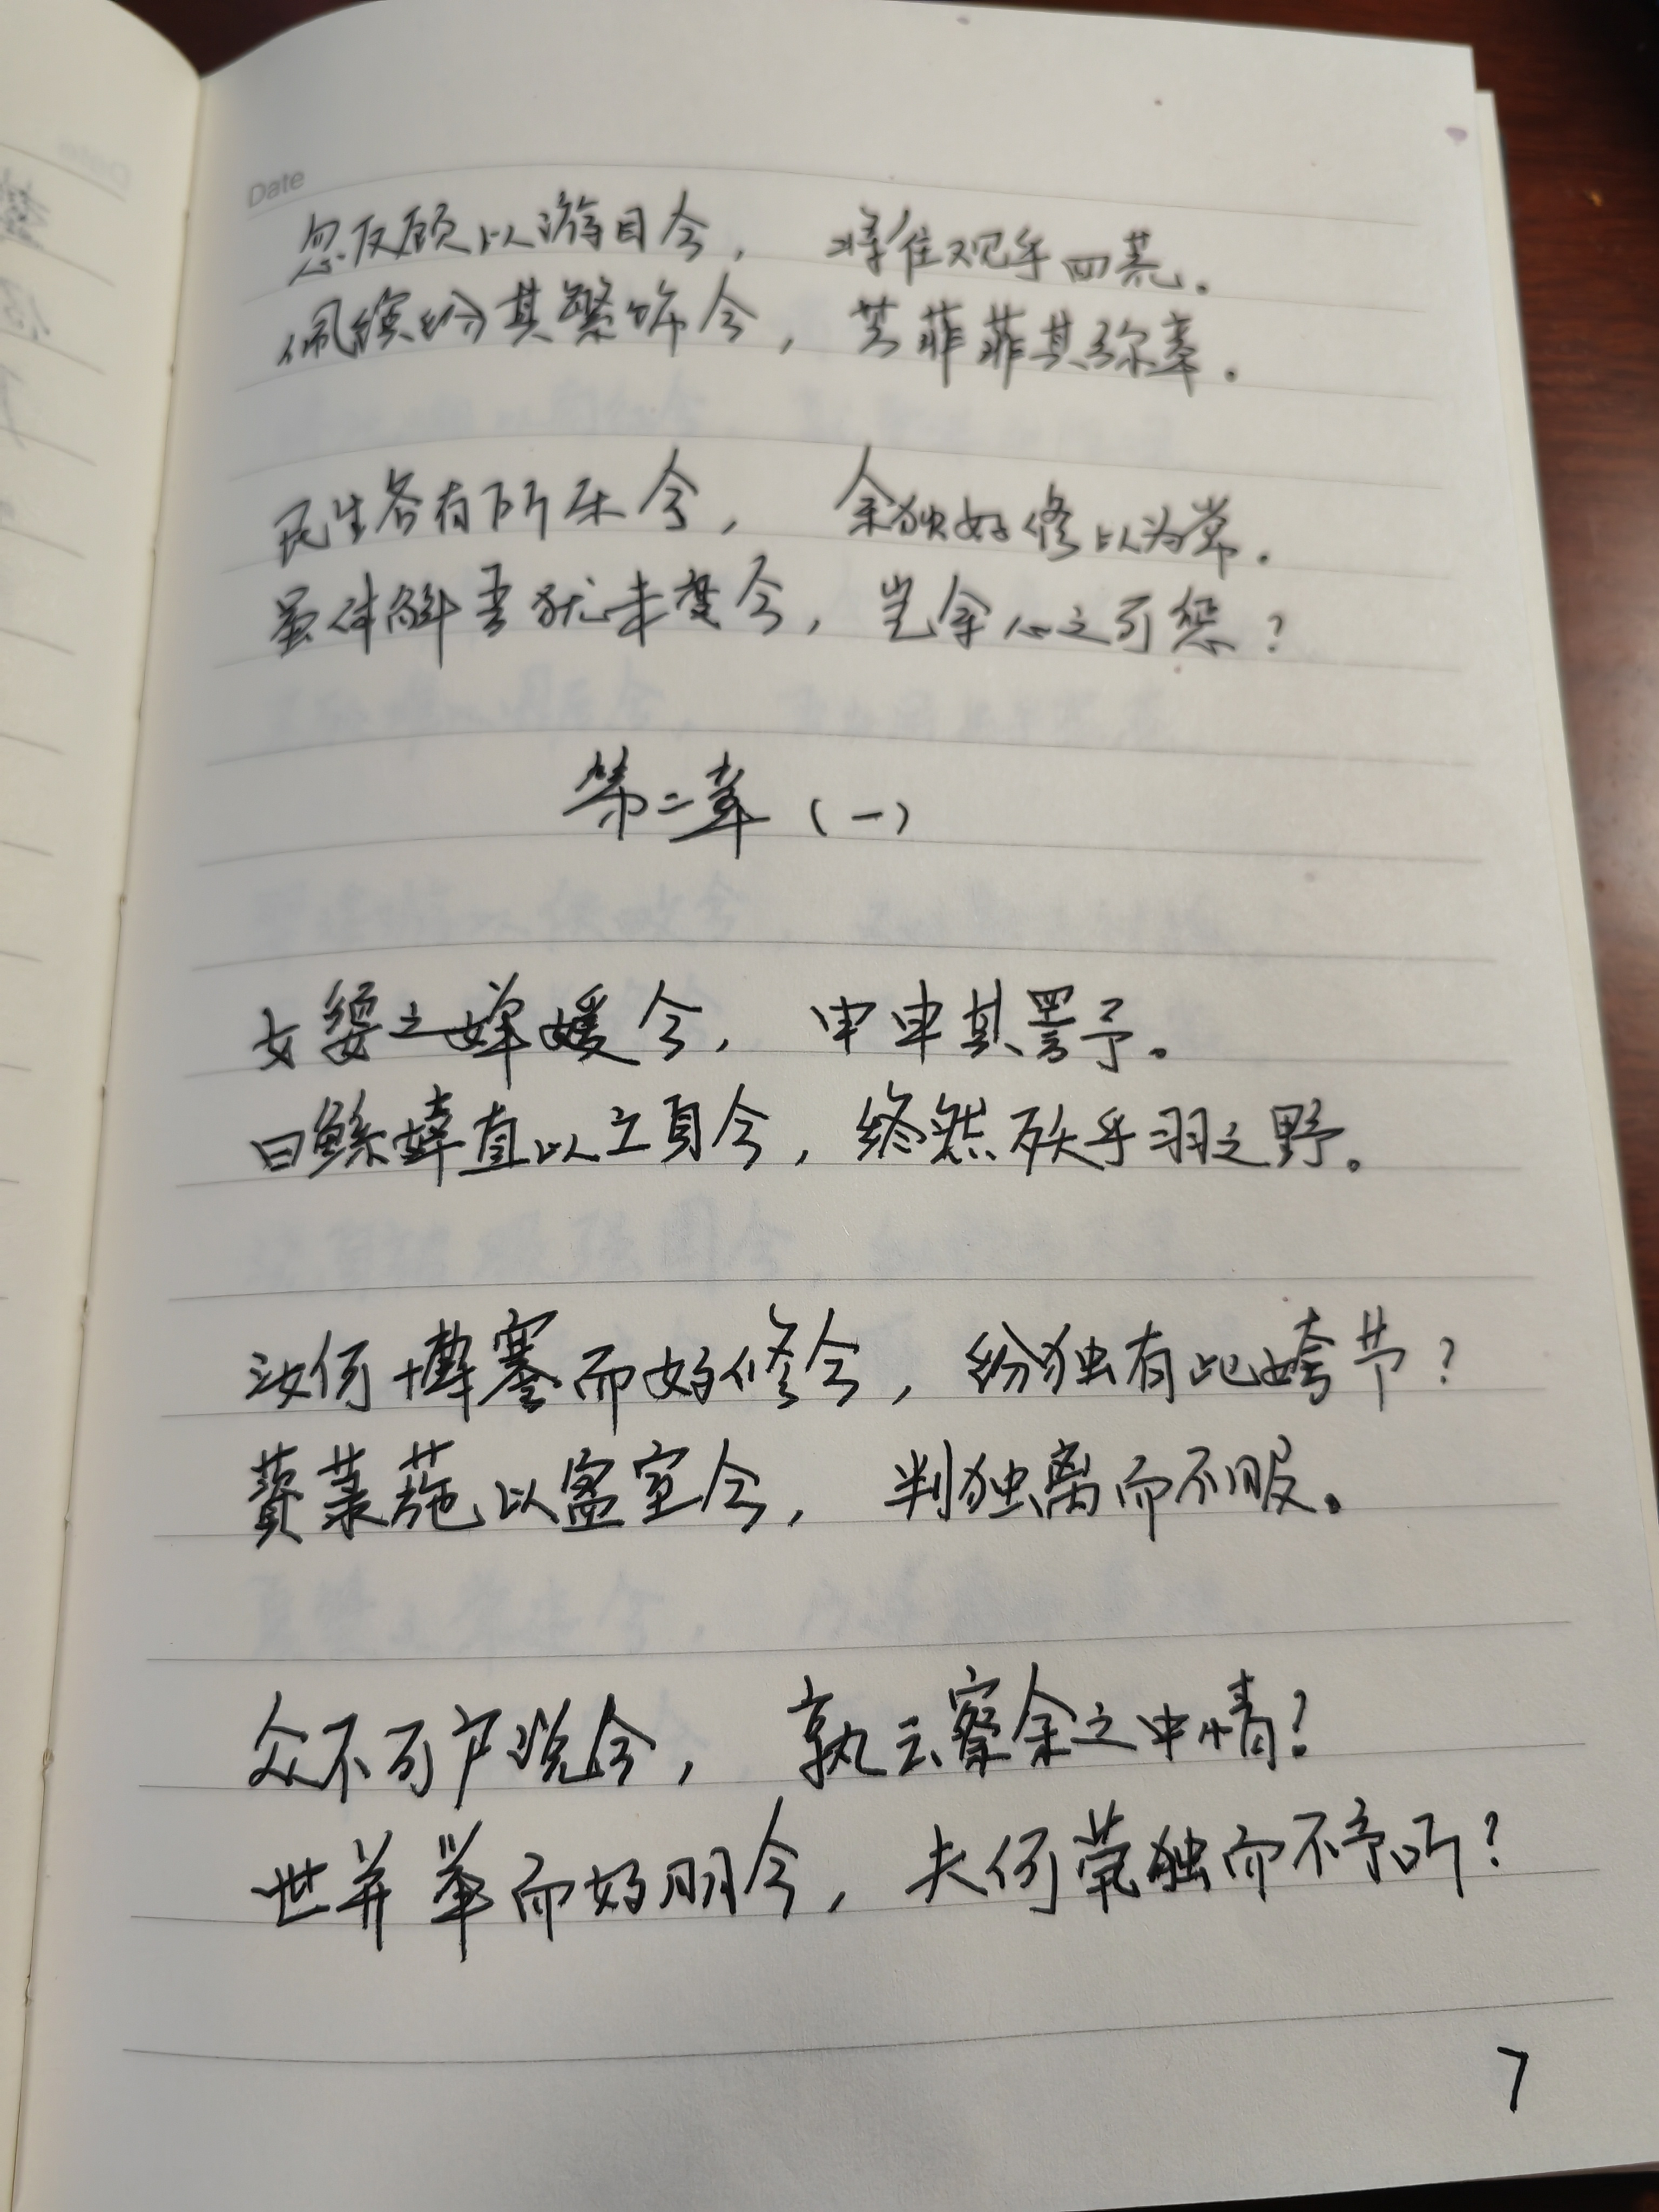 Date
忽反顾以游目兮，将往观乎四荒。
佩缤纷其繁饰兮，芳菲菲其弥章。
民生各有所乐兮，余独好修以为常。
虽体解吾犹未变兮，岂余心之可惩？
第二章（一）
女嬃之婵媛兮，申申其詈予。
曰鲧婞直以亡身兮，终然殀乎羽之野。
汝何博謇而好修兮，纷独有此姱节？
薋菉葹以盈室兮，判独离而不服。
众不可户说兮，孰云察余之中情？
世并举而好朋兮，夫何茕独而不予听？
7